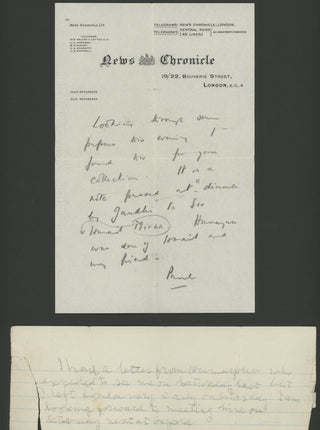 NEWS CHRONICLE LTD
TELEGRAMS: NEWS CHRONICLE, LONDON.
TELEPHONE: CENTRAL 5000
News Chronicle
19/22, BOUVERIE STREET,
LONDON, E.C.4
OUR REFERENCE
YOUR REFERENCE
Looking through some
papers this evening I
found this for your
collection. It is a
note passed at a dinner
by Gandhi to Sir
Ismail Mirza Humayun
was son of Ismail and
my friend.
Paul
I had a letter from who
expected to see me on Saturday last but
I left London very early on Saturday. I am
looking forward to meeting on
Saturday next at Oxford